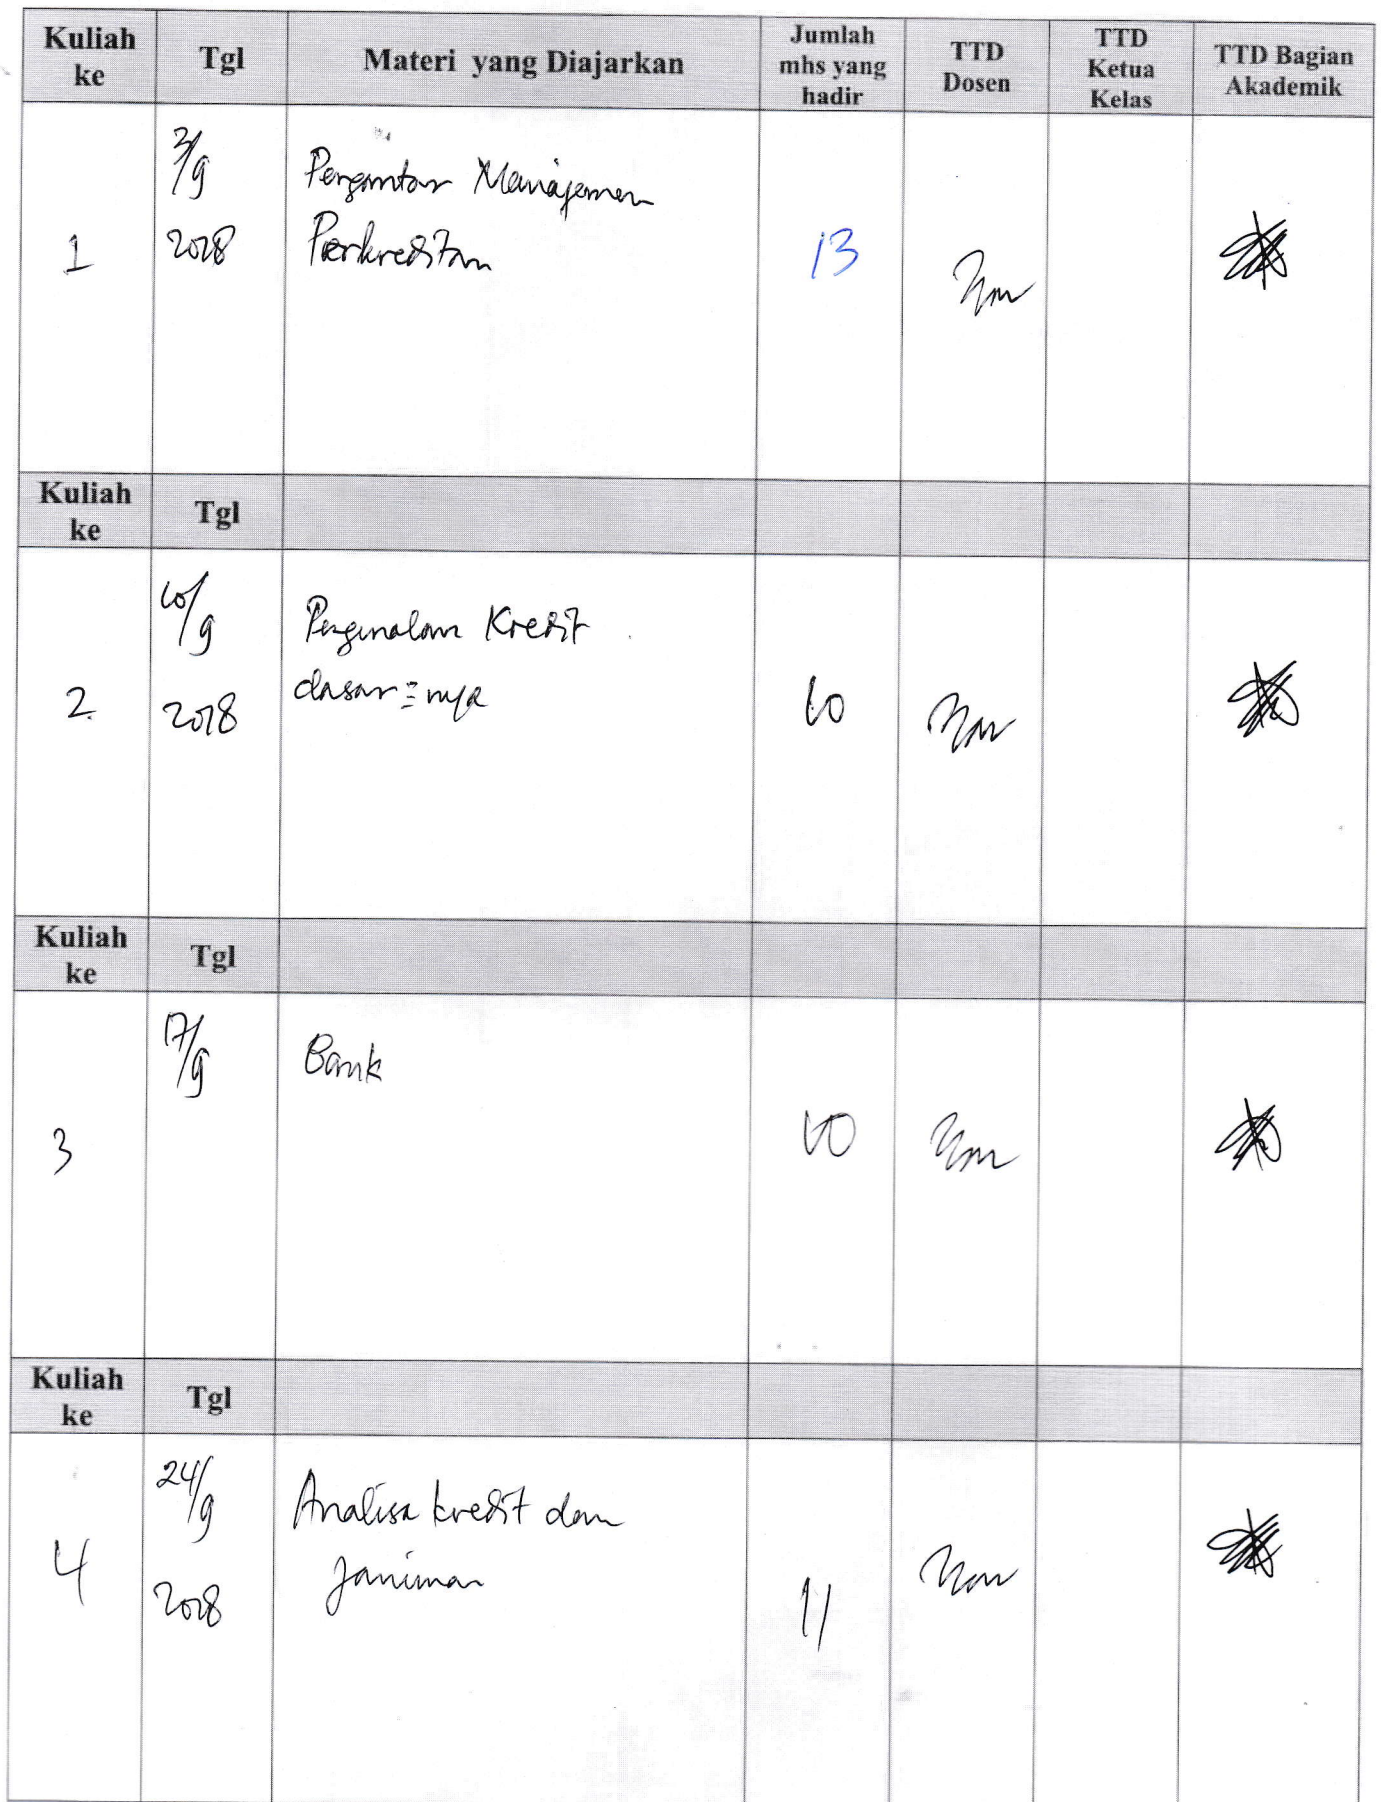 Kuliah ke Tgl Materi yang Diajarkan Jumlah mhs yang hadir TTD Dosen TTD Ketua Kelas TTD Bagian Akademik
3/9
Pengantar Manajemen
1 2018 Perkreditan 13
Kuliah ke Tgl
10/9
Pengenalan Kredit
2. 2018 dasar = nya 10
Kuliah ke Tgl
17/9 Bank
3 10
Kuliah ke Tgl
24/9 Analisa kredit dan
4 Jaminan
2018 11